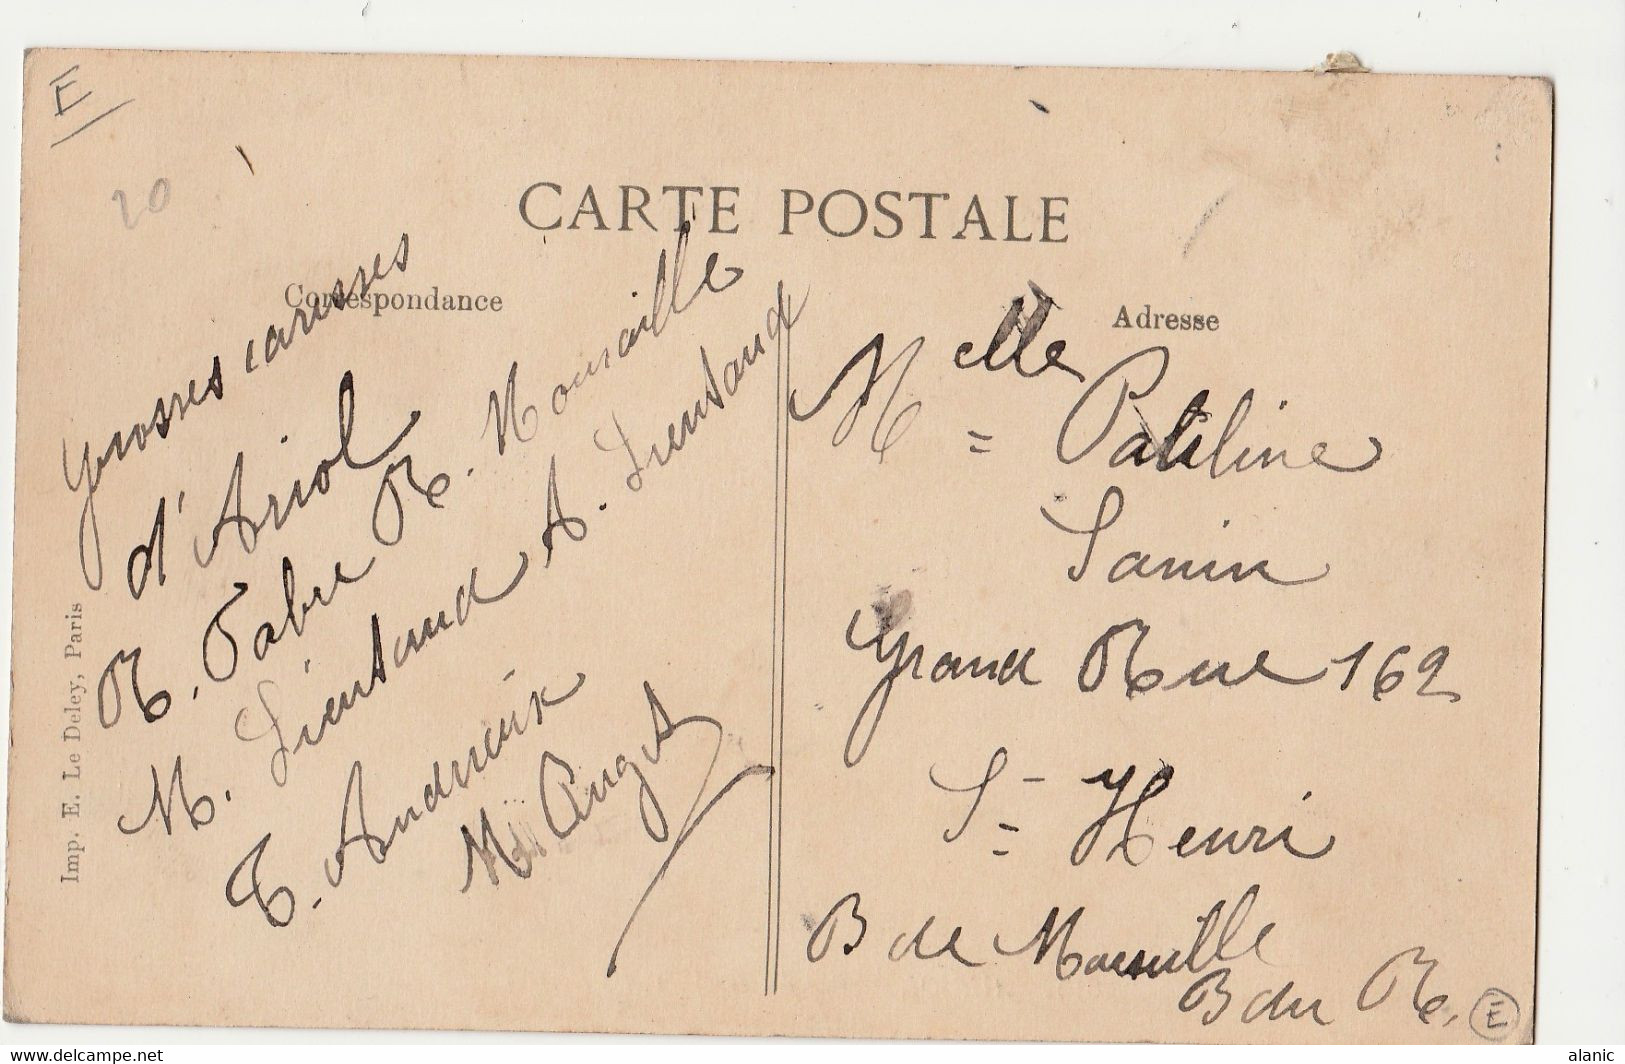 E
20
CARTE POSTALE
Correspondance
Grosses carisses
d'Ariol
R. Fabre R. Monraille
M. Lieutaud A. Lieutaud
E. Andrieix
M Auget
Imp. E. Le Deley, Paris
Adresse
Melle = Pauline
Sanin
Grand Rue 162
St = Henri
B de Marseille
B du R.
E
www.delcampe.net
alanic